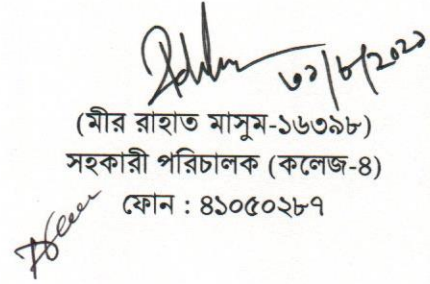 ৩১/৮/২০২১
(মীর রাহাত মাসুম-১৬৩৯৮)
সহকারী পরিচালক (কলেজ-৪)
ফোন : ৪১০৫০২৮৭